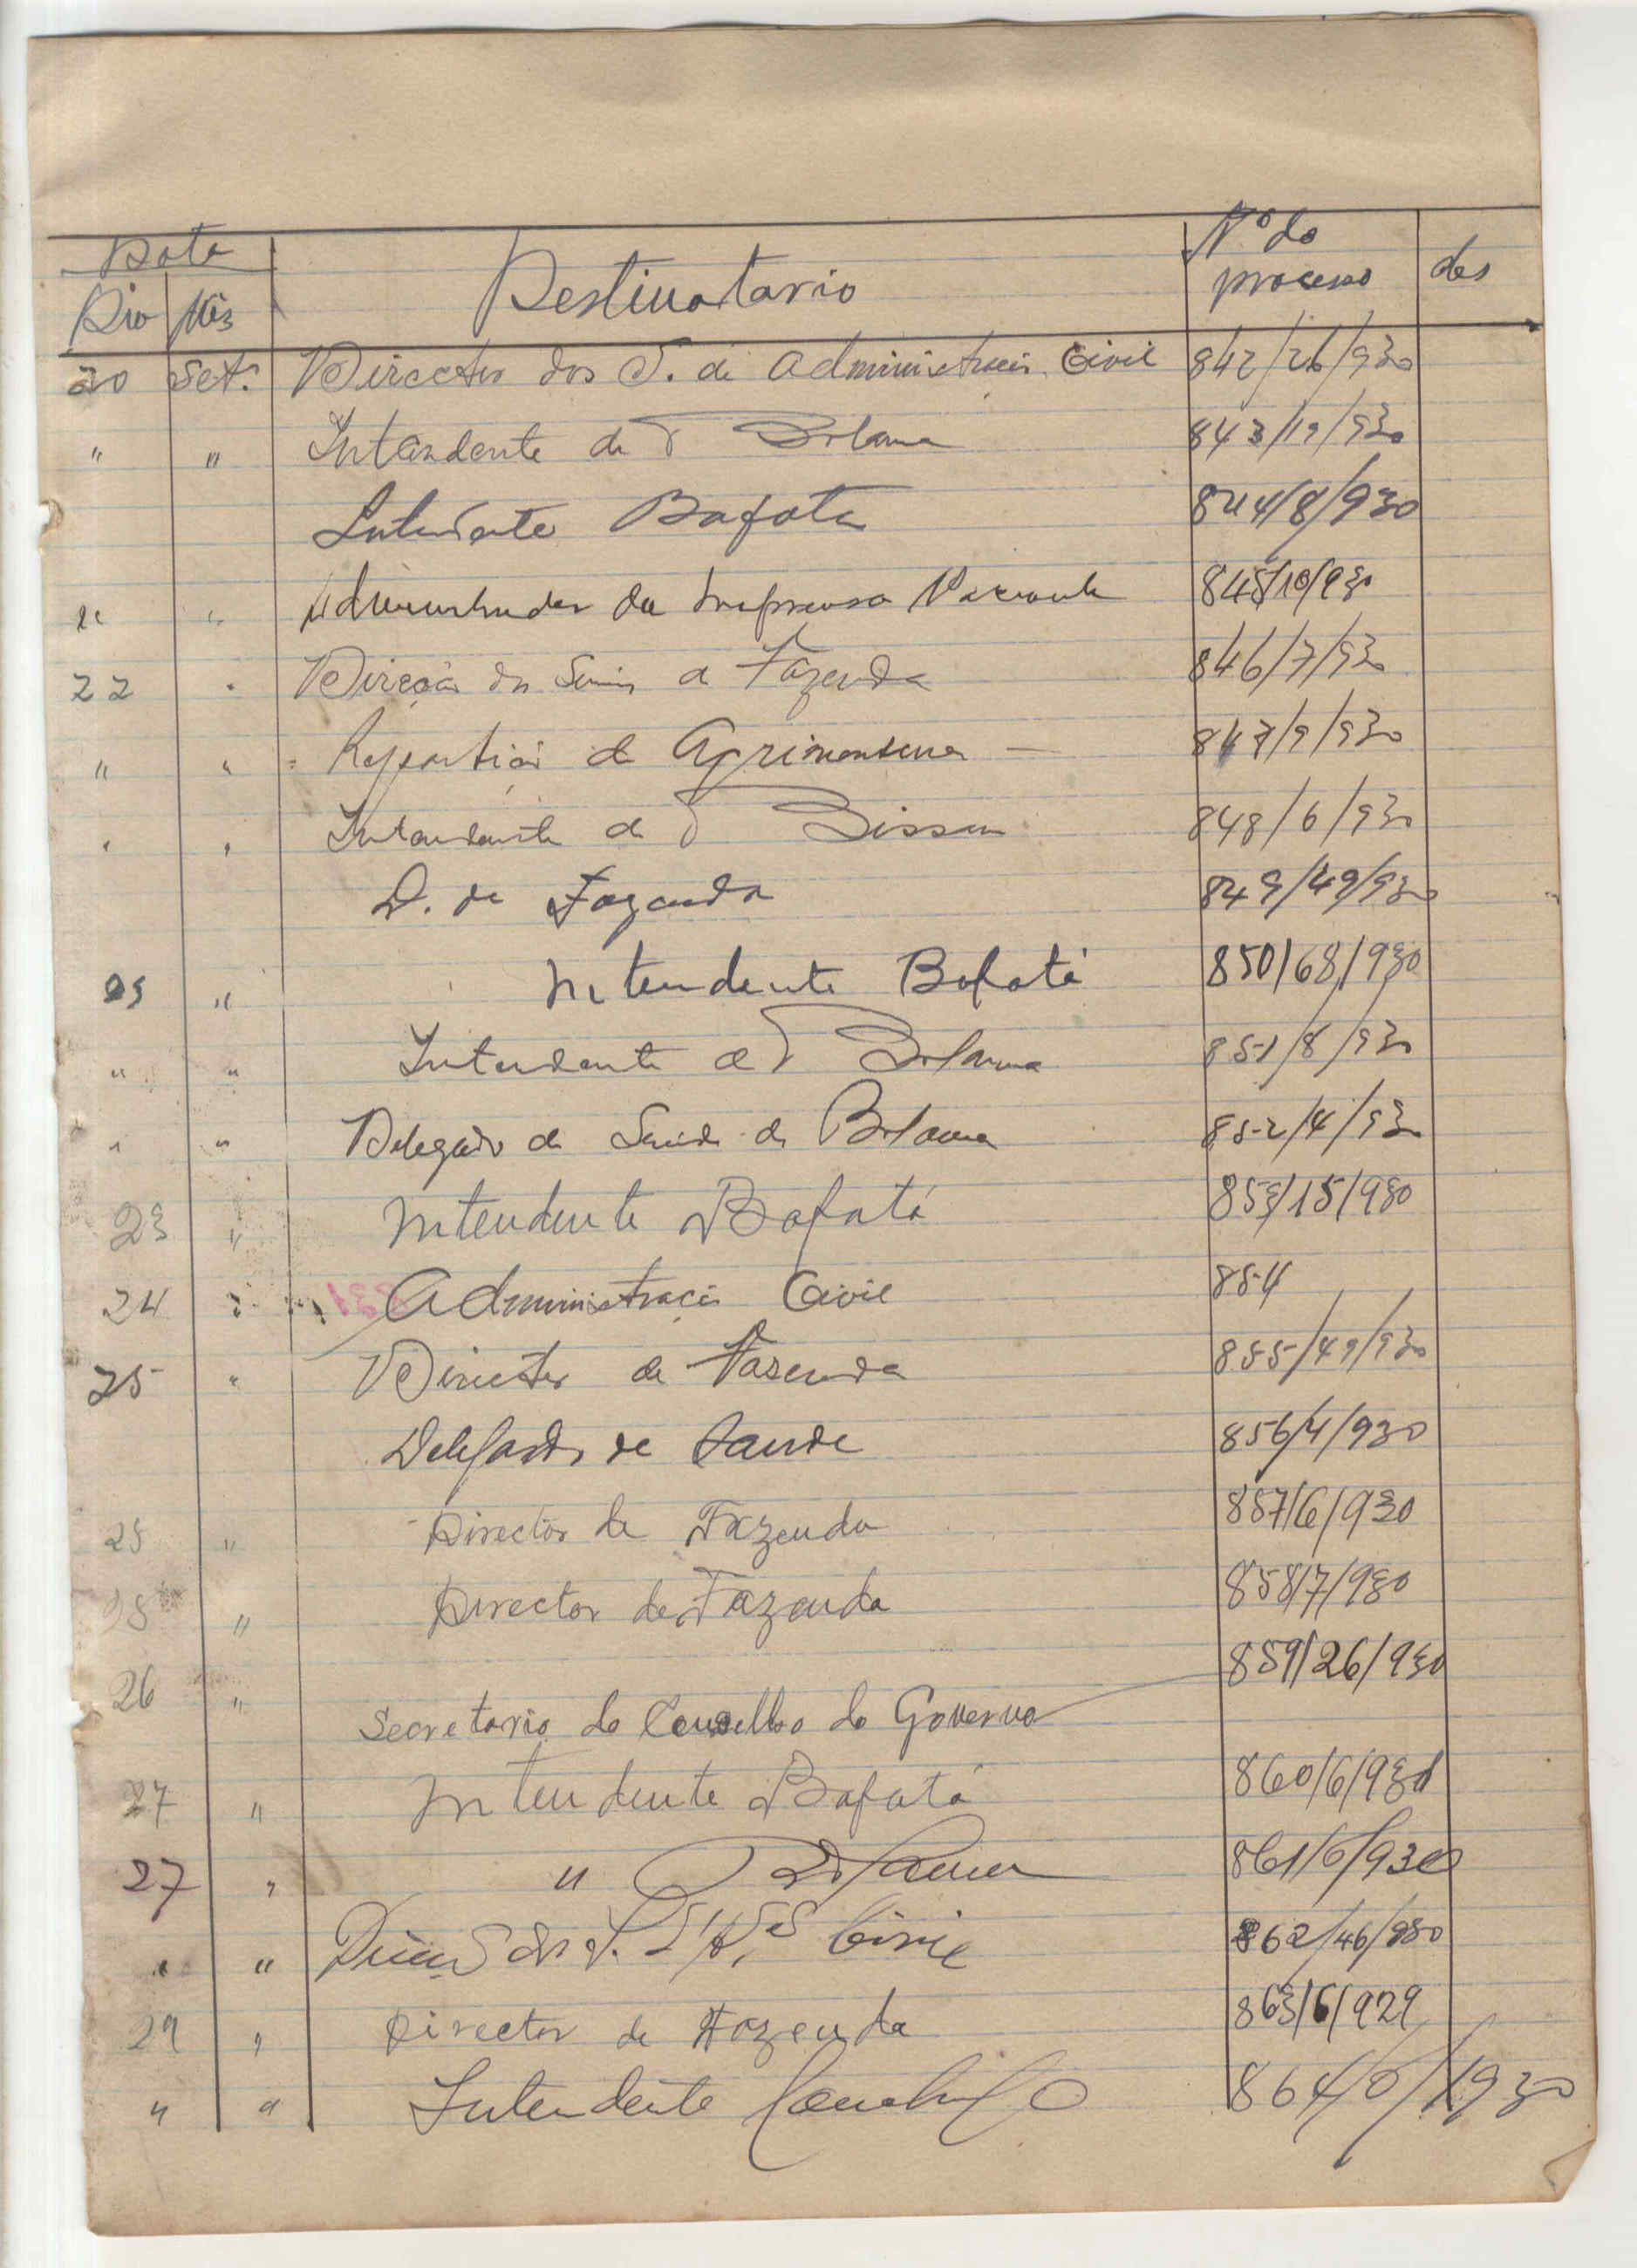 Data Destinatario Nº do
Dia Mês processo des
20 Set. Director dos S. de Administração Civil 842/26/930
" " Intendente de Bolama 843/19/930
Intendente Bafata 844/8/930
" " Administrador da Imprensa Nacional 845/10/930
22 " Direcção dos de Fazenda 846/7/930
" " Repartição de Agrimensura — 847/9/930
" " Intendente de Bissau 848/6/930
D. de Fazenda 849/49/930
23 " Intendente Bafatá 850/68/930
" " Intendente de Bolama 851/8/930
" " Delegado de Saude de Bolama 852/4/930
23 " Intendente Bafatá 853/15/930
24 " Administração Civil 854
25 " Director de Fazenda 855/49/930
Delegado de Saude 856/4/930
25 " Director de Fazenda 857/6/930
25 " Director de Fazenda 858/7/930
26 " 859/26/930
Secretario do Conselho do Governo
27 " Intendente Bafatá 860/6/930
27 " " Bolama 861/6/930
" " Civil 862/46/930
29 " Director de Fazenda 863/6/929
" " Intendente 864/6/1930